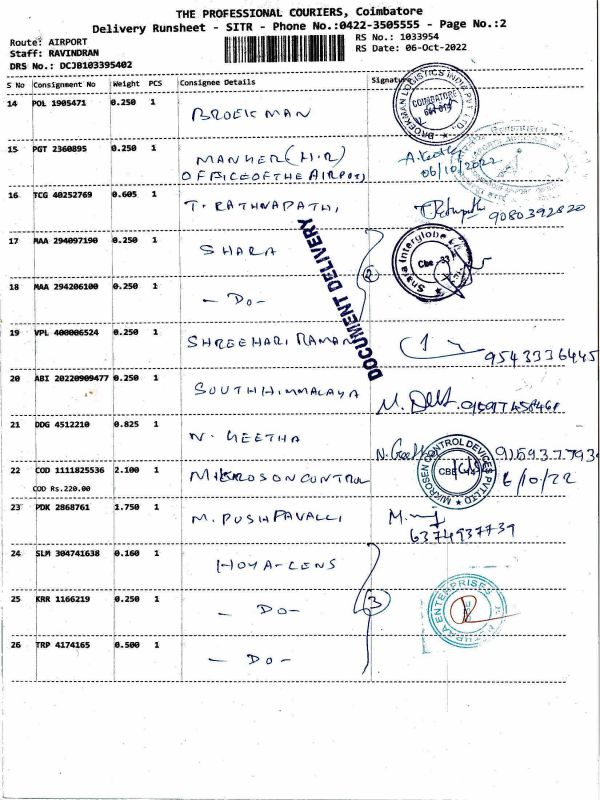 THE PROFESSIONAL COURIERS, Coimbatore
Delivery Runsheet - SITR - Phone No.:0422-3505555 - Page No.:2
Route: AIRPORT
RS No.: 1033954
Staff: RAVINDRAN
RS Date: 06-Oct-2022
DRS No.: DCJB103395402
S No Consignment No Weight PCS Consignee Details Signature
14 POL 1905471 0.250 1 BROEKMAN
BROEKMAN LOGISTICS INDIA PVT LTD.
COIMBATORE
15 PGT 2360895 0.250 1 MANKER (H.R)
OFFICE OF THE AIRPORT,
06/10/2022
16 TCG 40252769 0.605 1 T. RATHNAPATHI, 9080392820
17 MAA 294097190 0.250 1 SHARA
Cbe
18 MAA 294206100 0.250 1 - DO - 2
DOCUMENT DELIVERY
19 VPL 400006524 0.250 1 SHREEHARI RAMAN 9543336445
20 ABI 20220909477 0.250 1 SOUTH HIMMALAYA
21 DDG 4512210 0.825 1 N. GEETHA N. Geetha
22 COD 1111825536 2.100 1 MIKROSON CONTROL
COD Rs.220.00
MIKROSEN CONTROL DEVICES PVT LTD
CBE
6/10/22
23 PDK 2868761 1.750 1 M. PUSHPAVALLI
6374937739
24 SLM 304741638 0.160 1 HOYA-LENS
25 KRR 1166219 0.250 1 - DO - 3
ENTERPRISES
26 TRP 4174165 0.500 1 - DO -